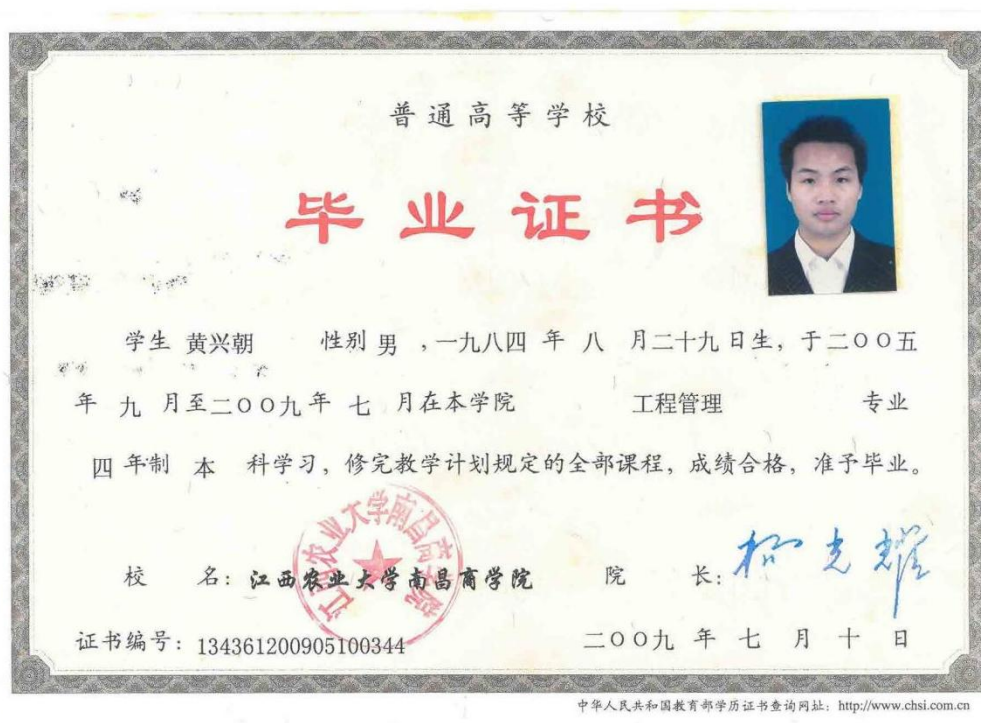 普通高等学校
毕业证书
学生 黄兴朝 性别 男 ,一九八四 年 八 月二十九日生，于二００五
年 九 月至二００九年 七 月在本学院 工程管理 专业
四 年制 本 科学习，修完教学计划规定的全部课程，成绩合格，准予毕业。
江西农业大学南昌商学院
校 名：江西农业大学南昌商学院 院 长：柳光耀
证书编号：134361200905100344 二００九 年 七 月 十 日
中华人民共和国教育部学历证书查询网址：http://www.chsi.com.cn